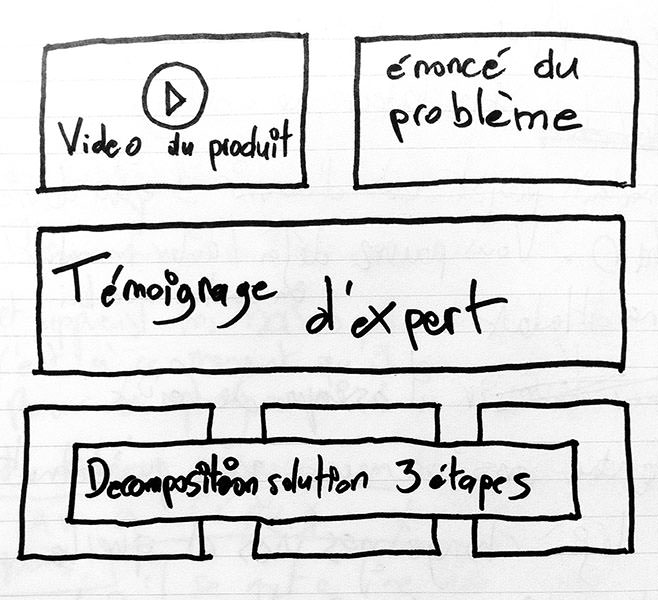 Video du produit
énoncé du
problème
Témoignage d'expert
Decomposition solution 3 étapes